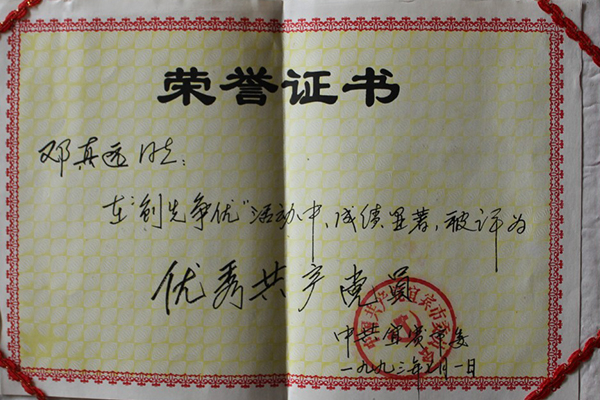 荣誉证书
邓真远同志：
在"创先争优"活动中，成绩显著，被评为
优秀共产党员
中共宜宾委
一九九三年月一日